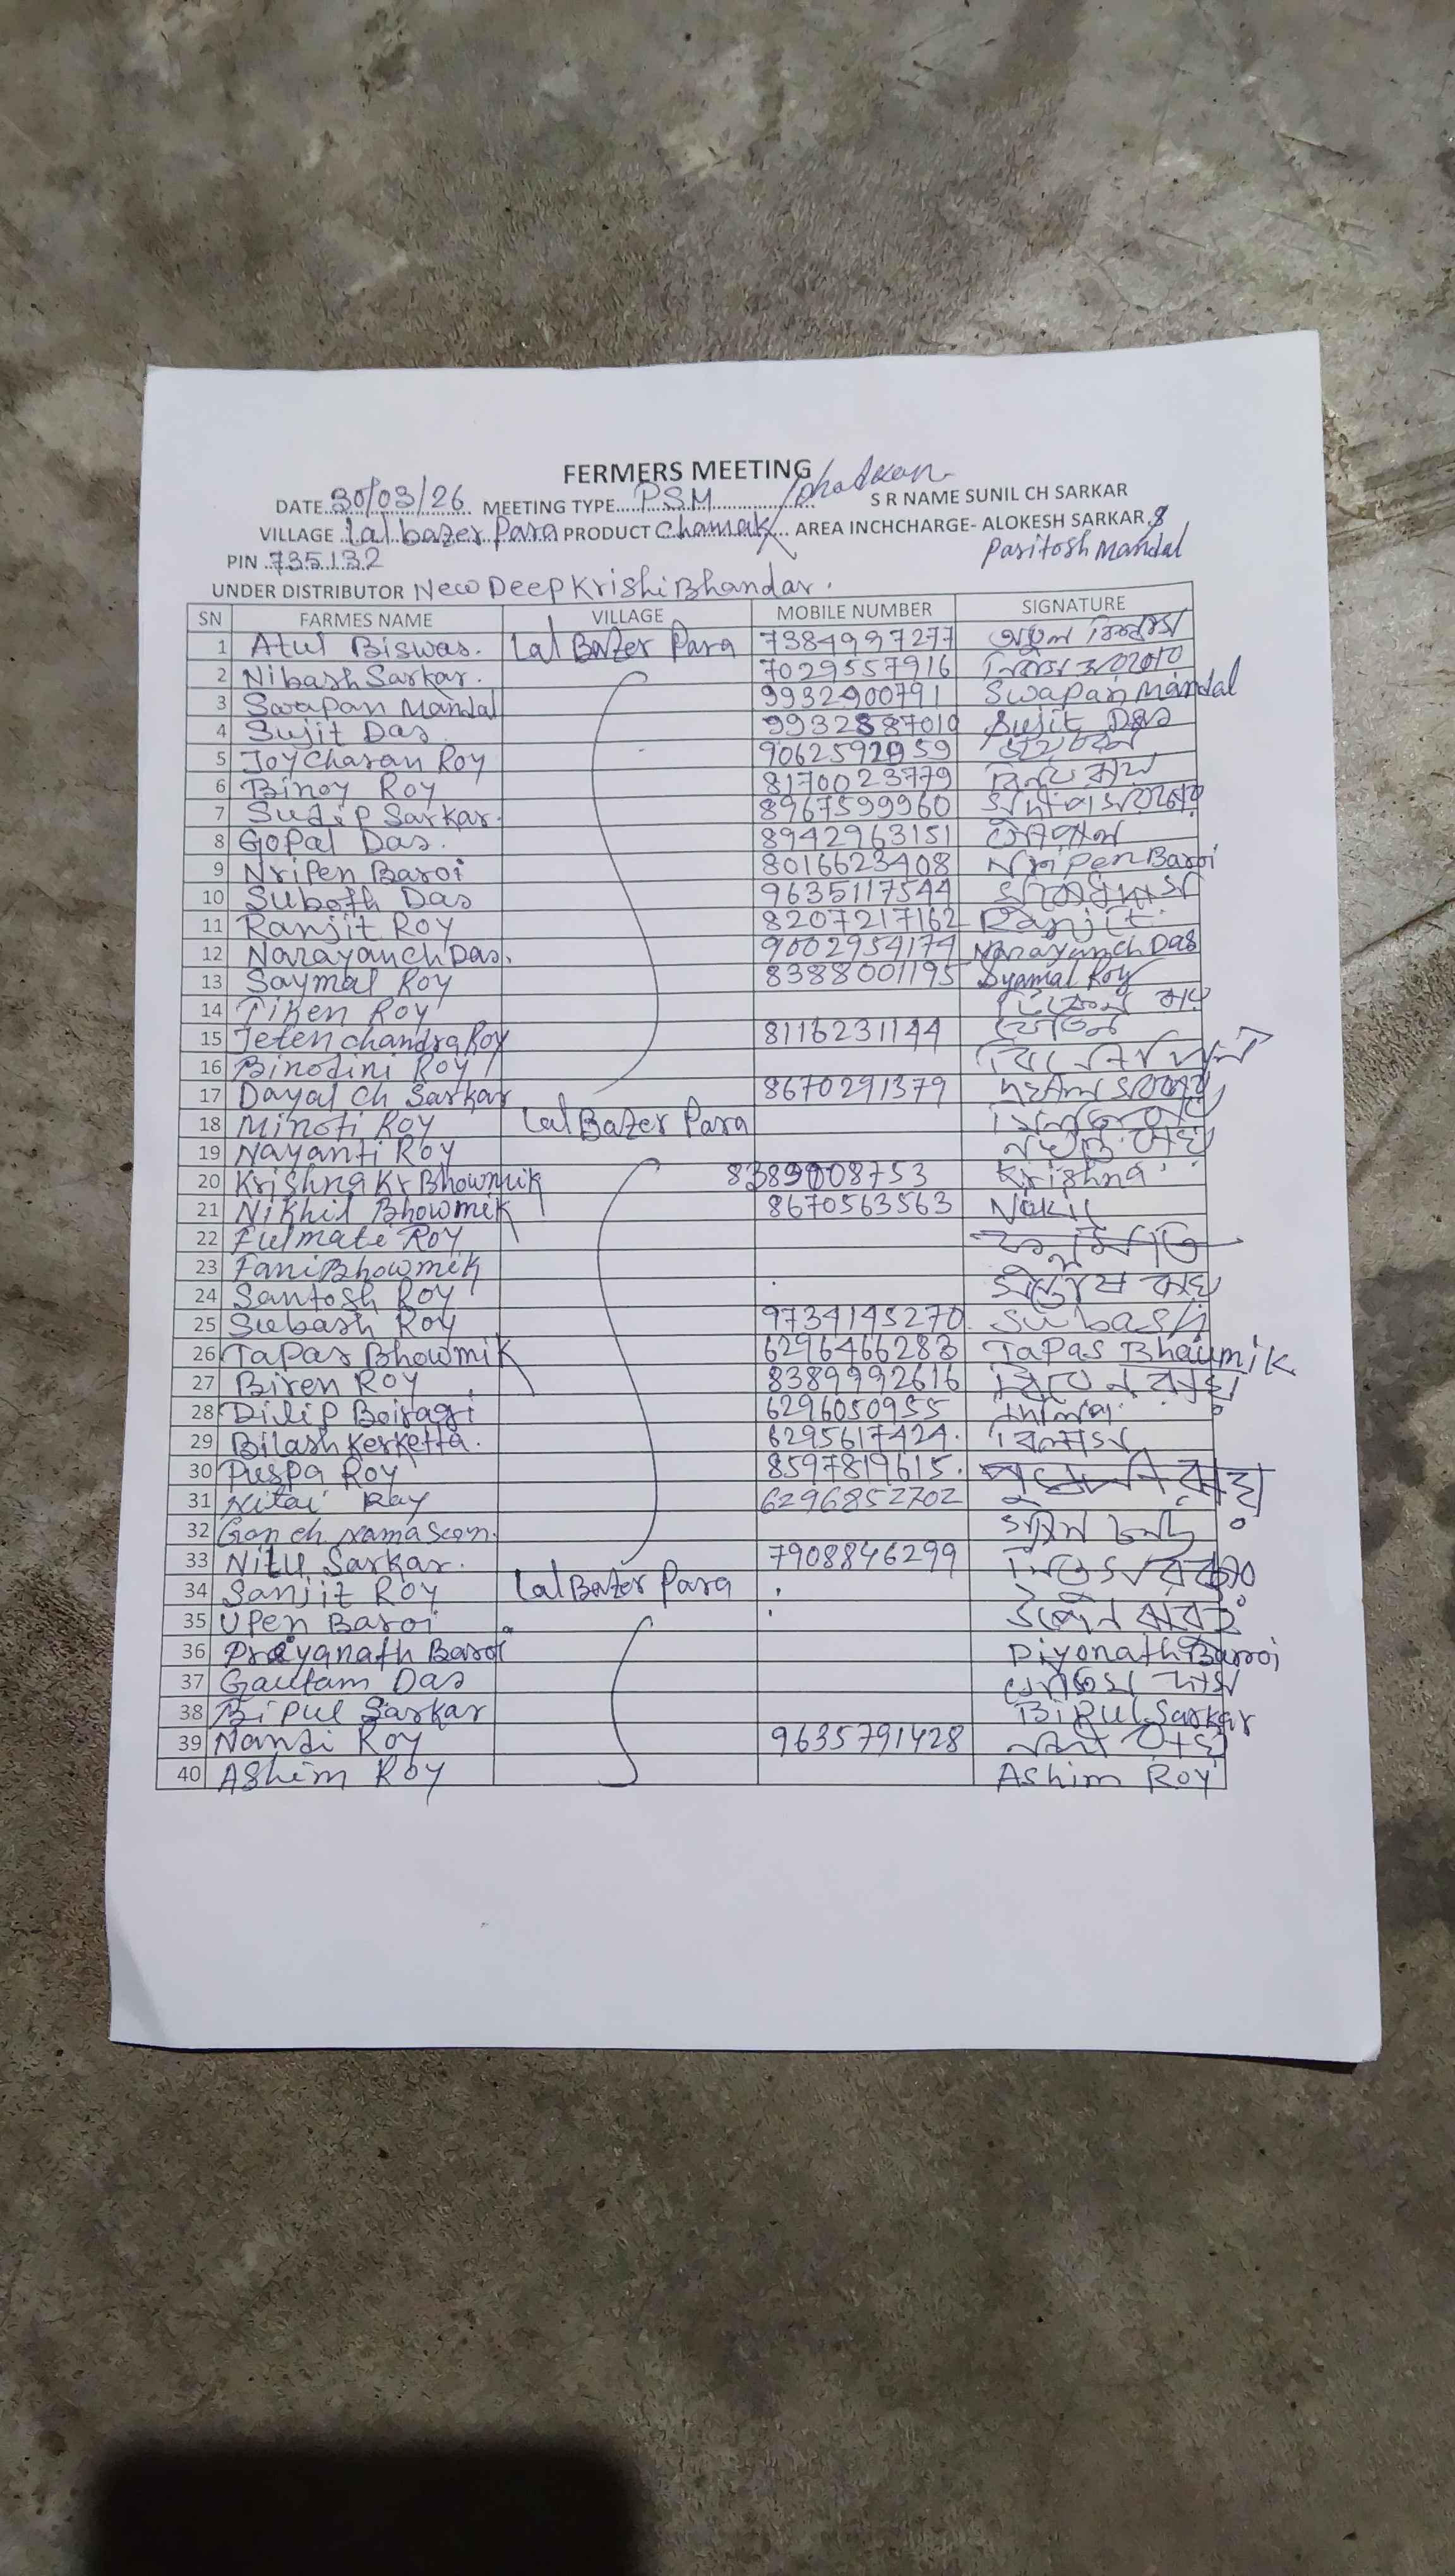 FERMERS MEETING
DATE 30/03/26 MEETING TYPE PSM S R NAME SUNIL CH SARKAR
VILLAGE Lalbazer Para PRODUCT Chamak/ AREA INCHCHARGE- ALOKESH SARKAR &
PIN 735132 Paritosh Mandal
UNDER DISTRIBUTOR New Deep Krishi Bhandar.
SN FARMES NAME VILLAGE MOBILE NUMBER SIGNATURE
1 Atul Biswas. Lal Bazer Para 7384997277 অতুল বিশ্বাস
2 Nibash Sarkar. 7029557916
3 Swapan Mandal 9932900791 Swapan Mandal
4 Sujit Das 9932587010 Sujit Das
5 Joy Charan Roy 9062592959
6 Binoy Roy 8170023779 বিনয় রায়
7 Sudip Sarkar. 8967599960
8 Gopal Das. 8942963151 গোপাল
9 Nripen Baroi 8016623408 Nripen Baroi
10 Suboth Das 9635117544
11 Ranjit Roy 8207217162 Ranjit
12 Narayan ch Das. 9002954174 Narayan ch Das
13 Saymal Roy 8388001195 Syamal Roy
14 Tiken Roy
15 Jeten chandra Roy 8116231144
16 Binodini Roy
17 Dayal Ch Sarkar 8670291379
18 Minoti Roy Lal Bazer Para
19 Nayanti Roy
20 Krishna Kr Bhowmik 8389008753 Krishna
21 Nikhil Bhowmik 8670563563
22 Fulmati Roy
23 Fani Bhowmik
24 Santosh Roy সন্তোষ রায়
25 Subash Roy 9734145270 Subash
26 Tapas Bhowmik 6296466283 Tapas Bhaumik
27 Biren Roy 8389992616
28 Dilip Boiragi 6296050955
29 Bilash Kerketta. 6295617424. বিলাস
30 Puspa Roy 8597819615.
31 Nitai Ray 6296852702
32 Gan ch
33 Nitu Sarkar. 7908846299
34 Sanjit Roy Lal Bazer Para
35 Upen Baroi
36 Prayanath Baroi Piyonath Baroi
37 Gautam Das গৌতম দাস
38 Bipul Sarkar Bipul Sarkar
39 Nandi Roy 9635791428
40 Ashim Roy Ashim Roy